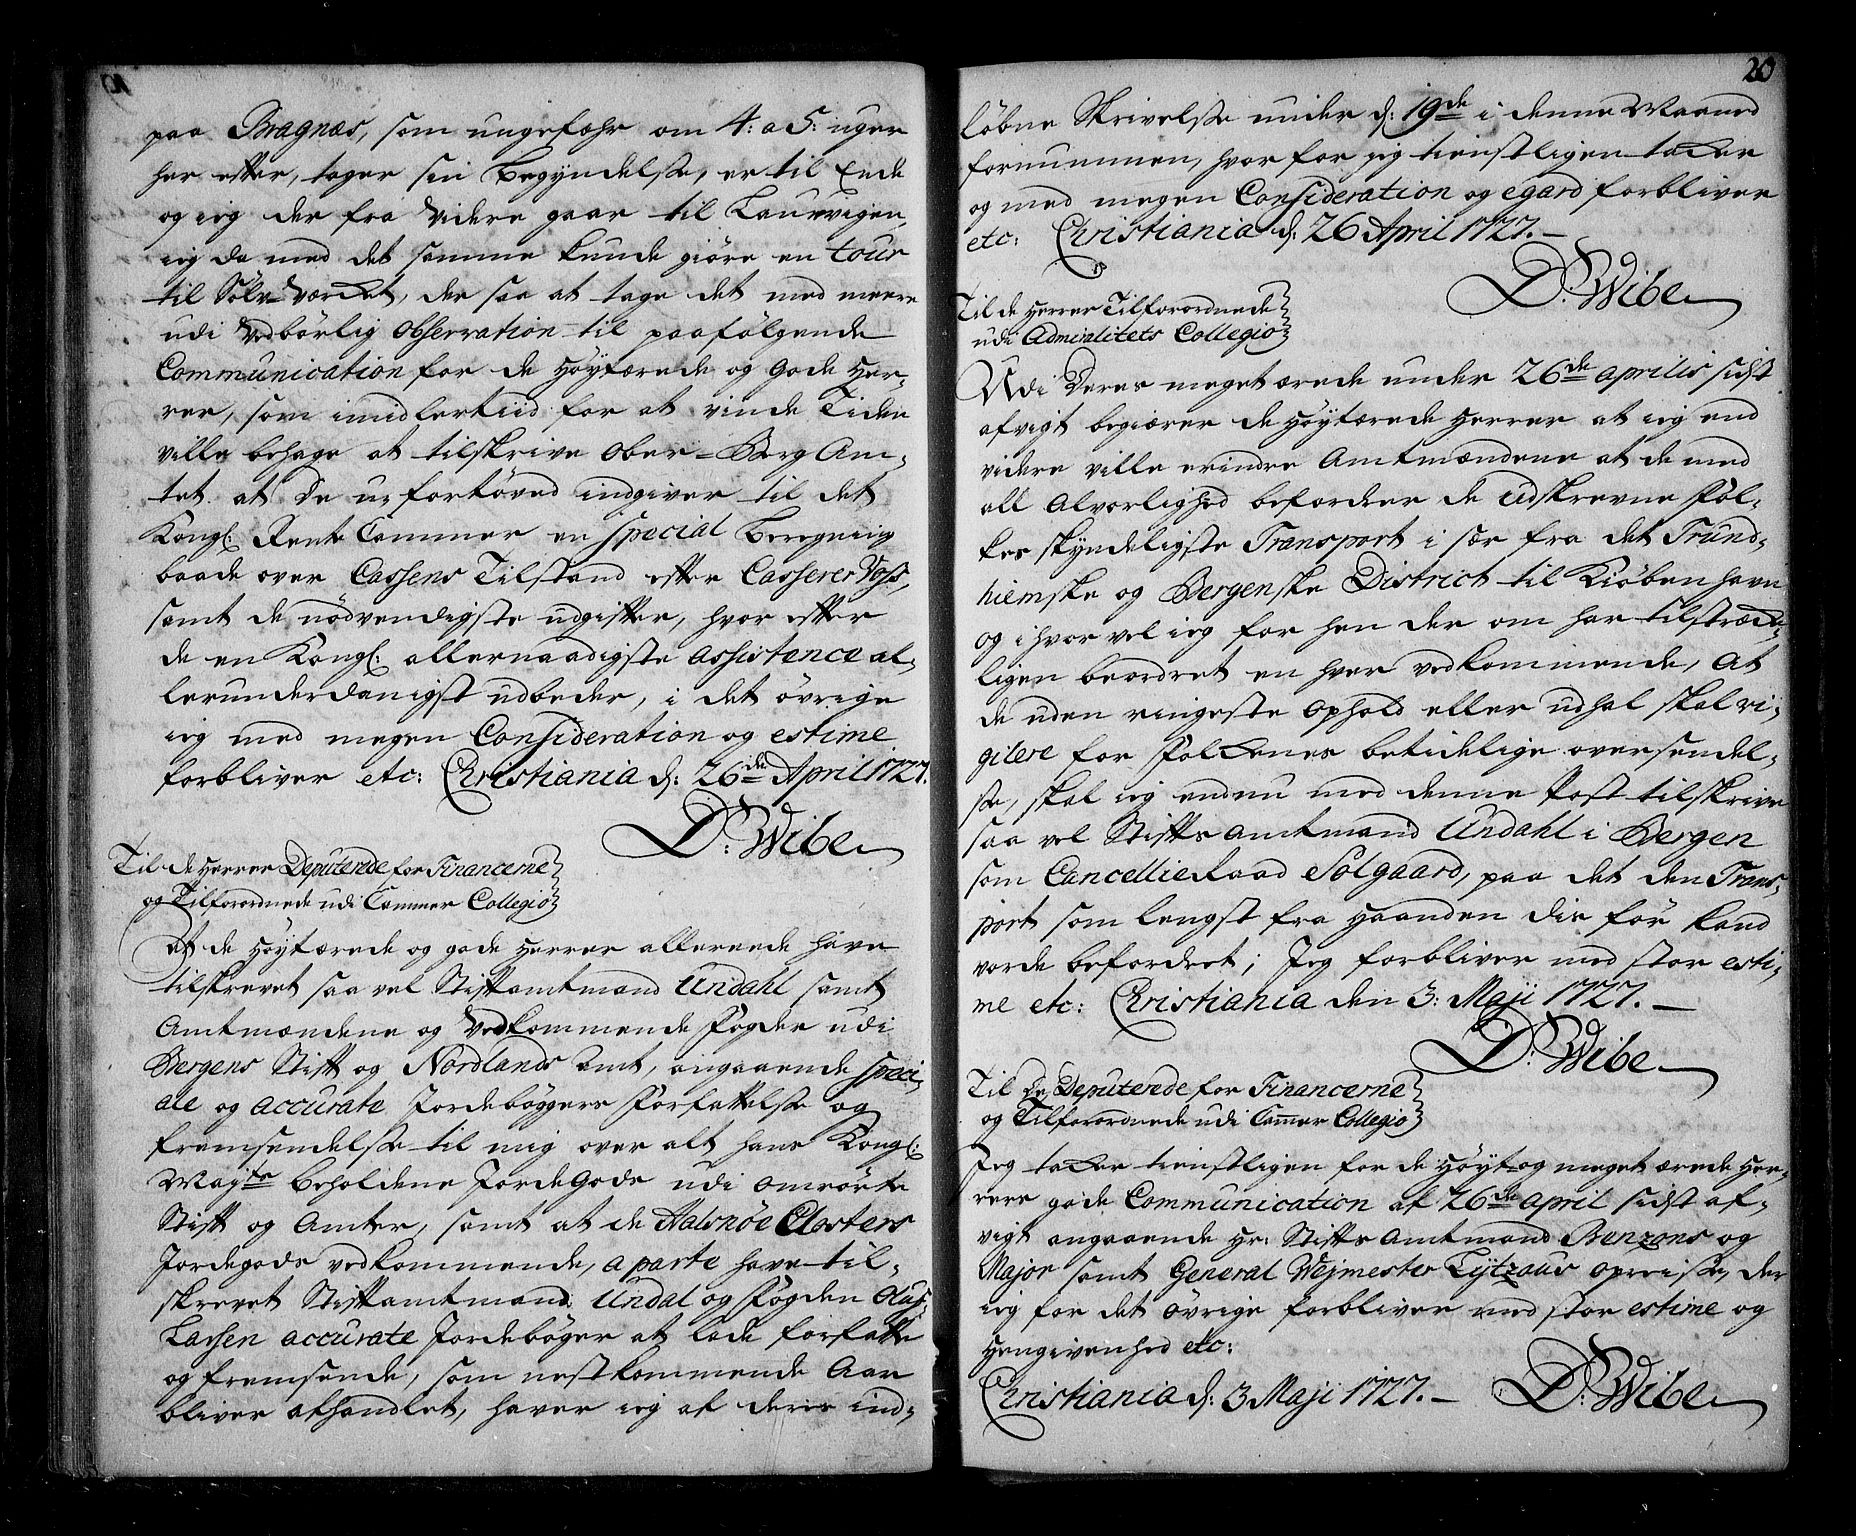 paa Bragnæs, som ungefæhr om 4: a 5: uger
her effter, tager sin begyndelse, er til Ende
og ieg der fra videre gaar til Laurvigen
ieg da med det samme kunde giöre en tour
til Sölv-Værcket, der saa at tage det med meere
udi vedbörlig observation til paafölgende
Communication for de Höyærede og gode Her-
rer, som imidlertiid for at vinde Tiden
ville behage at tilskrive Ober-Berg Am-
tet at De ufortöved indgiver til det
Kongl: Rente Cammer en special Beregning
baade over Cassens Tilstand effter Casserer Voss,
samt de nödvendigste udgiffter, hvor effter
de en Kongl: allernaadigste assistence al-
lerunderdanigst udbeder, i det övrige
ieg med megen Consideration og estime
forbliver etc: Christiania d: 26de April 1727.
D: Wibe
Til de Herrer Deputerede for Financerne
og Tilforordnede udi Cammer Collegio
At de Höyærede og gode Herrer allereede have
tilskrevet saa vel Stiftamtmand Undahl samt
Amtmændene og vedkommende Fogder udi
Bergens Stift og Nordlands Amt, angaaende speci-
ale og accurate Jordeböggers Forfattelse og
fremsendelse til mig over alt hans Kongl:
Maytz beholdene Jordegods udi omrörte
Stift og Amter, samt at de Halsnöe Closters
Jordegods vedkommende, aparte have til-
skrevet Stiftamtmand Undal og Fogden Oluf
Lassen accurate Jordeböger at lade forfatte
og fremsende, som nestkommende Aar
bliver afhandlet, haver ieg af deris ind-
20
löbne Skrivelse under d: 19de i denne Maaned
fornummen, hvor for jeg tienstligen tacker
og med megen Consideration og egard forbliver
etc: Christiania d: 26 April 1727.
D: Wibe
Til de Herrer Tilforordnede
udi Admiralitets Collegio
Udi Deres meget ærede under 26de aprilis sidst
afvigt begiærer de Höytærede Herrer at ieg end
videre ville erindre Amtmændene at de med
all Alvorlighed befordrer de udskrevne Fol-
kes skyndeligste Transport i sær fra det Trund-
hiemske og Bergenske District til Kiöbenhavn
og ihvor vel ieg for hen der om har tilstræcke-
ligen beordret en hver vedkommende, At
de uden ringeste Ophold eller udhal skal vi-
gilere for Folckenes betidelige oversendel-
se, skal ieg endnu med denne Post tilskrive
saa vel Stiftsamtmand Undahl i Bergen
som Cancellie Raad Solgaard, paa det den Trans-
port som lengst fra Haanden dis för kand
vorde befordret; Jeg forbliver med stor esti-
me etc: Christiania den 3: Maji 1727.
D: Wibe
Til De Deputerede for Financerne
og Tilforordnede udi Cammer Collegio
Jeg tacker tienstligen for de Höyt og meget ærede Her-
rers gode Communication af 26de april sidst af-
vigt angaaende Hr: Stiftsamtmand Benzons og
Major samt General Vejmester Lytzaus opreise, der
ieg for det övrige forbliver med stor estime og
Hengivenhed etc:
Christiania d: 3 Maji 1727. D: Wibe